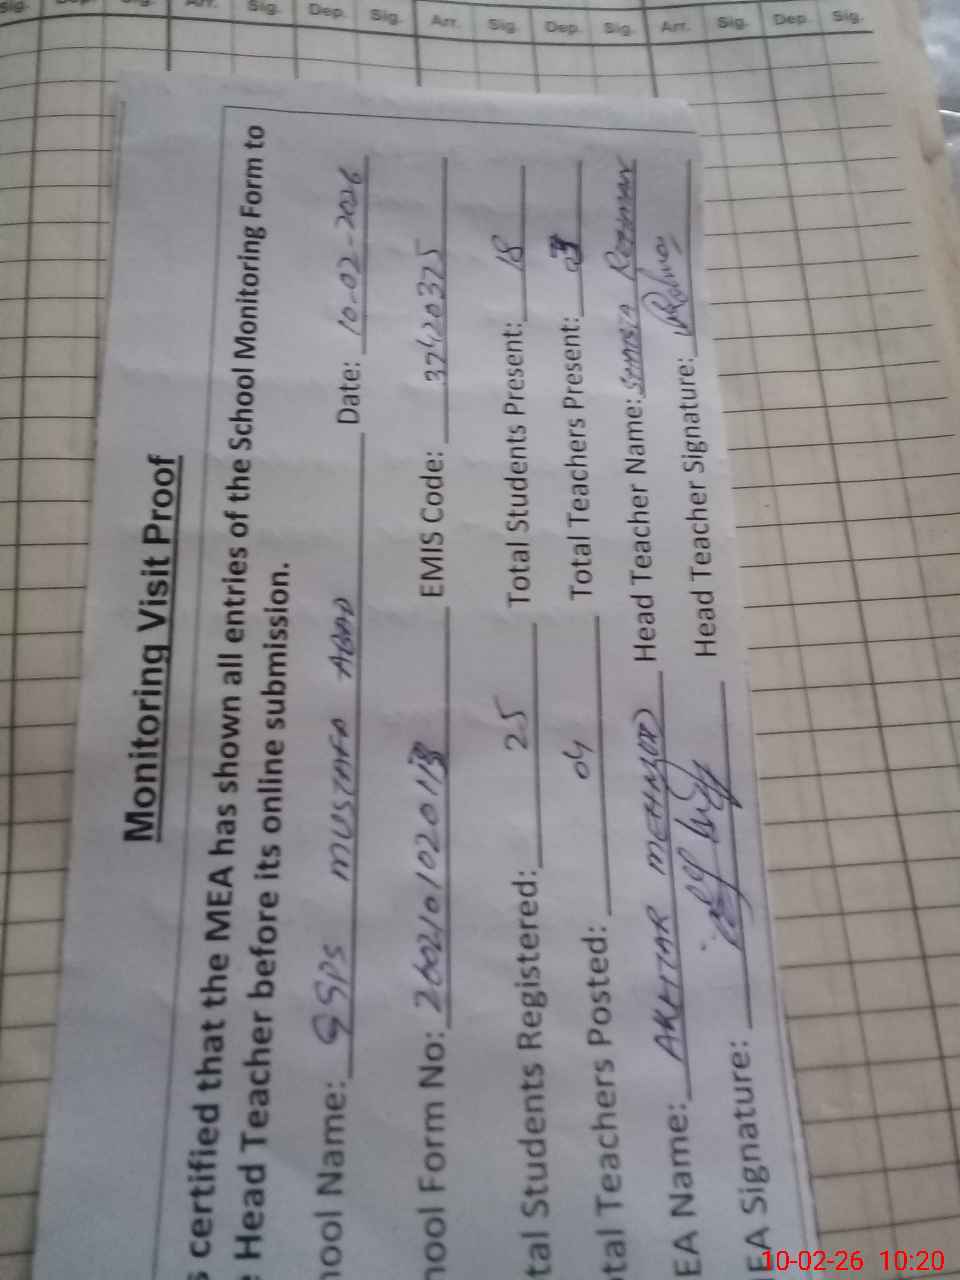 Sig. Dep. Sig. Arr. Sig. Dep. Sig. Arr. Sig. Dep. Sig. Arr. Sig. Dep. Sig.
Monitoring Visit Proof
certified that the MEA has shown all entries of the School Monitoring Form to
Head Teacher before its online submission.
hool Name: GGPS MUSTAFA ABAD Date: 10-02-2026
hool Form No: EMIS Code: 37420375
tal Students Registered: 25 Total Students Present: 18
tal Teachers Posted: 04 Total Teachers Present:
EA Name: AKHTAR MEHMOOD Head Teacher Name: Rehman
EA Signature: Head Teacher Signature:
10-02-26 10:20